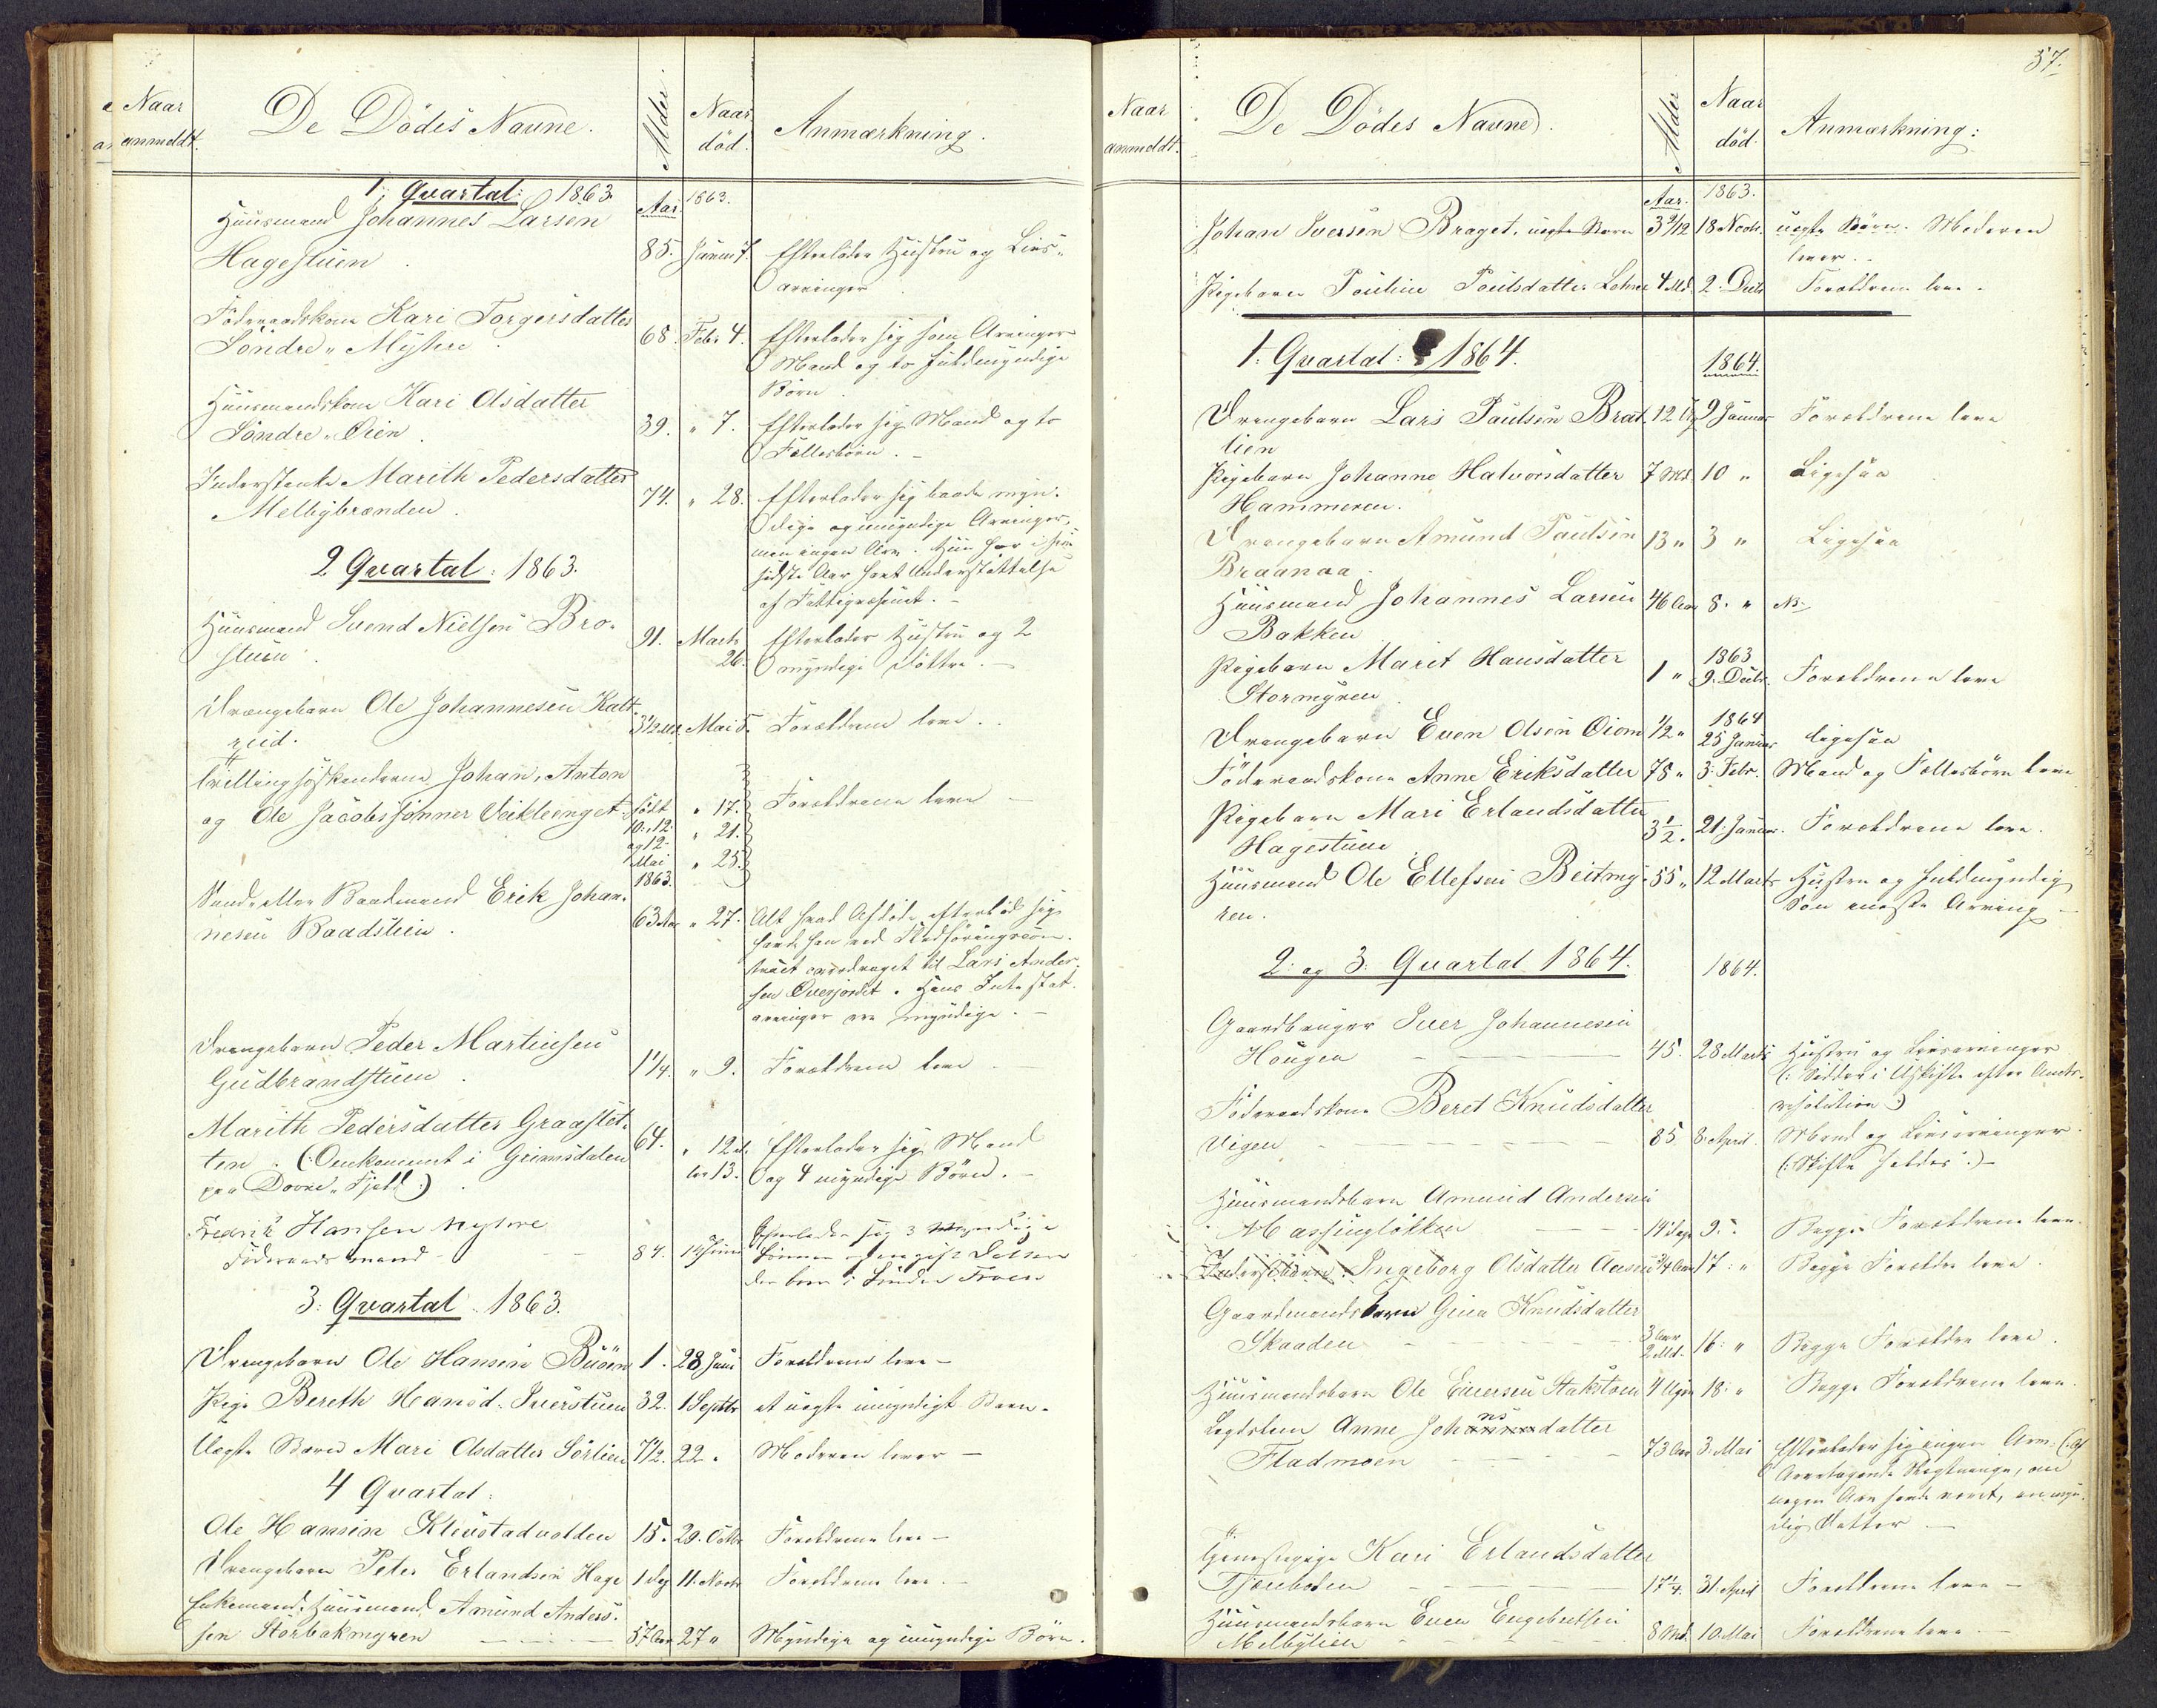 Naar
anmeldt.
De Dödes Navne.
Alder
Naar
död.
Anmærkning.
1. Qvartal: 1863.
Aar
1863.
Huusmand Johannes Larsen
Hagestuen.
85. Januar 7. Efterlader Hustru og Livs-
arvinger
Föderaadskone Kari Torgersdatter
Söndre Myhre.
68. Febr 4. Efterlader sig som Arvinger
Mand og to fuldmyndige
Börn
Huusmandskone Kari Olsdatter
Söndre Öien.
39. " 7. Efterlader sig Mand og to
Fællesbörn. -
Inderstenke Marith Pedersdatter
Melbybrænden.
74. " 28. Efterlader sig baade myn-
dige og umyndige Arvinger,
men ingen Arv. Hun har i sine
sidste Aar havt Understøttelse
af Fattigvæsenet. -
2 Qvartal: 1863.
Huusmand Svend Nielsen Bro-
stuen.
91. Marts
26. Efterlader Hustru og 2
myndige Döttre. -
Drengebarn Ole Johannesen Kalt-
rud.
3 1/2 Md. Mai 5. Forældrene leve.
Trillingsöskendene Johan, Anton
og Ole Jacobssönner Veikleenget
födt
10., 12.
og 12
Mai
1863.
" 17.
" 21.
" 25.
Forældrene leve -
Baadmand Erik Johan-
nesen Baadstien.
63 Aar " 27. Alt hvad Afdöde efterlod sig
havde han ved Födföringscon-
tract overdraget til Lars Ander-
sen Överjordet. Hans Intestat-
arvinger ere myndige. -
Drengebarn Peder Martinsen
Gudbrandstuen.
1 1/4. " 9. Forældrene leve. -
Marith Pedersdatter Graastet-
ten. (: Omkommet i Grimsdalen
paa Dovre-Fjeld:).
64. " 12 el-
ler 13. Efterlader sig Mand
og 4 myndige Börn. -
Fredrik Hansen Myhre
Föderaads mand -
84. 14 Juni Efterlader sig 3 myndige
Sönner og en gift Datter
der boer i Söndre Froen
3: Qvartal. 1863.
Drengebarn Ole Hansen Buöen 1. 28 Juni Forældrene leve -
Pige Bereth Hansd. Iverstuen 32. 1 Septbr et uægte umyndigt Barn.
Uægte Barn Mari Olsdatter Sörlien 7 1/2. 22 " Moderen lever -
4 Qvartal:
Ole Hansen Klevstadvolden 15. 20. Octbr Forældrene leve -
Drengebarn Peter Erlandsen Hage 1 Dag 11. Novbr Forældrene leve. -
Enkemand, Huusmand Amund Anders-
sen Storbakmyren
57 Aar 27 " Myndige og umyndige Börn.
37.
Naar
anmeldt.
De Dödes Navne.
Alder
Naar
död.
Anmærkning:
Aar.
1863.
Johan Iversen Braget, uægte Barn 3 9/12 18 Novbr. uægte Börn. Moderen
lever..
Pigebarn Pauline Paulsdatter Lohne 4 Md. 2. Decbr Forældrene leve.
1. Qvartal: 1864.
1864.
Drengebarn Lars Paulsen Brat-
lien
12 Ug 9 Januar Forældrene leve
Pigebarn Johanne Halvorsdatter
Hammeren.
7 Md. 10 " Ligesaa
Drengebarn Amund Paulsen
Braanaa.
13 " 3 " Ligesaa
Huusmand Johannes Larsen
Bakken
46 Aar 8. "
Pigebarn Marit Hansdatter
Stormyren
1 " 1863
9. Decbr. Forældrene leve
Drengebarn Even Olsen Öiom 1/2 " 1864
25 Januar ligesaa
Föderaadskone Anne Eriksdatter 78 " 3. Febr. Mand og Fællesbörn leve
Pigebarn Mari Erlandsdatter
Hagestuen
3 1/2. 21. Januar. Forældrene leve.
Huusmand Ole Ellefsen Beitmy-
ren.
55 " 12 Marts Hustru og fuldmyndig
Sön eneste Arving -
2. og 3. Qvartal 1864.
1864.
Gaardbruger Iver Johannesen
Hougen
45. 28 Marts Hustru og Livsarvinger
(: Sidder i Uskifte efter Amts-
resolution :)
Föderaadskone Beret Knudsdatter
Vigen
85 8. April. Mand og Livsarvinger.
(: Skifte holdes :) -
Huusmandsbarn Amund Andersen
Massinglökken
14 Dage 9. " Begge Forældrene leve.
Inderstbarn Ingeborg Olsdatter Aasen 3/4 Aar 17 " Begge Forældre leve.
Gaardmandsbarn Gina Knudsdatter
Skaaden
3 Aar
2 Md. 16. " Begge Forældre leve.
Huusmandsbarn Ole Einersen Stakstoen 4 Uger 18. " Begge Forældrene leve.
Legdslem Anne Johansdatter
Fladmoen
73 Aar 3. Mai Efterlader sig ingen Arv. (: Af
Arvetagende Slægtninge, om
nogen Arv havde været, en myn-
dig Datter -
Tjenestepige Kari Erlandsdatter
Tjæreboden
17 1/4. 31 April Forældrene leve -
Huusmandsbarn Even Engebretsen
Melbylien
8 Md. 10. Mai Forældrene leve. -